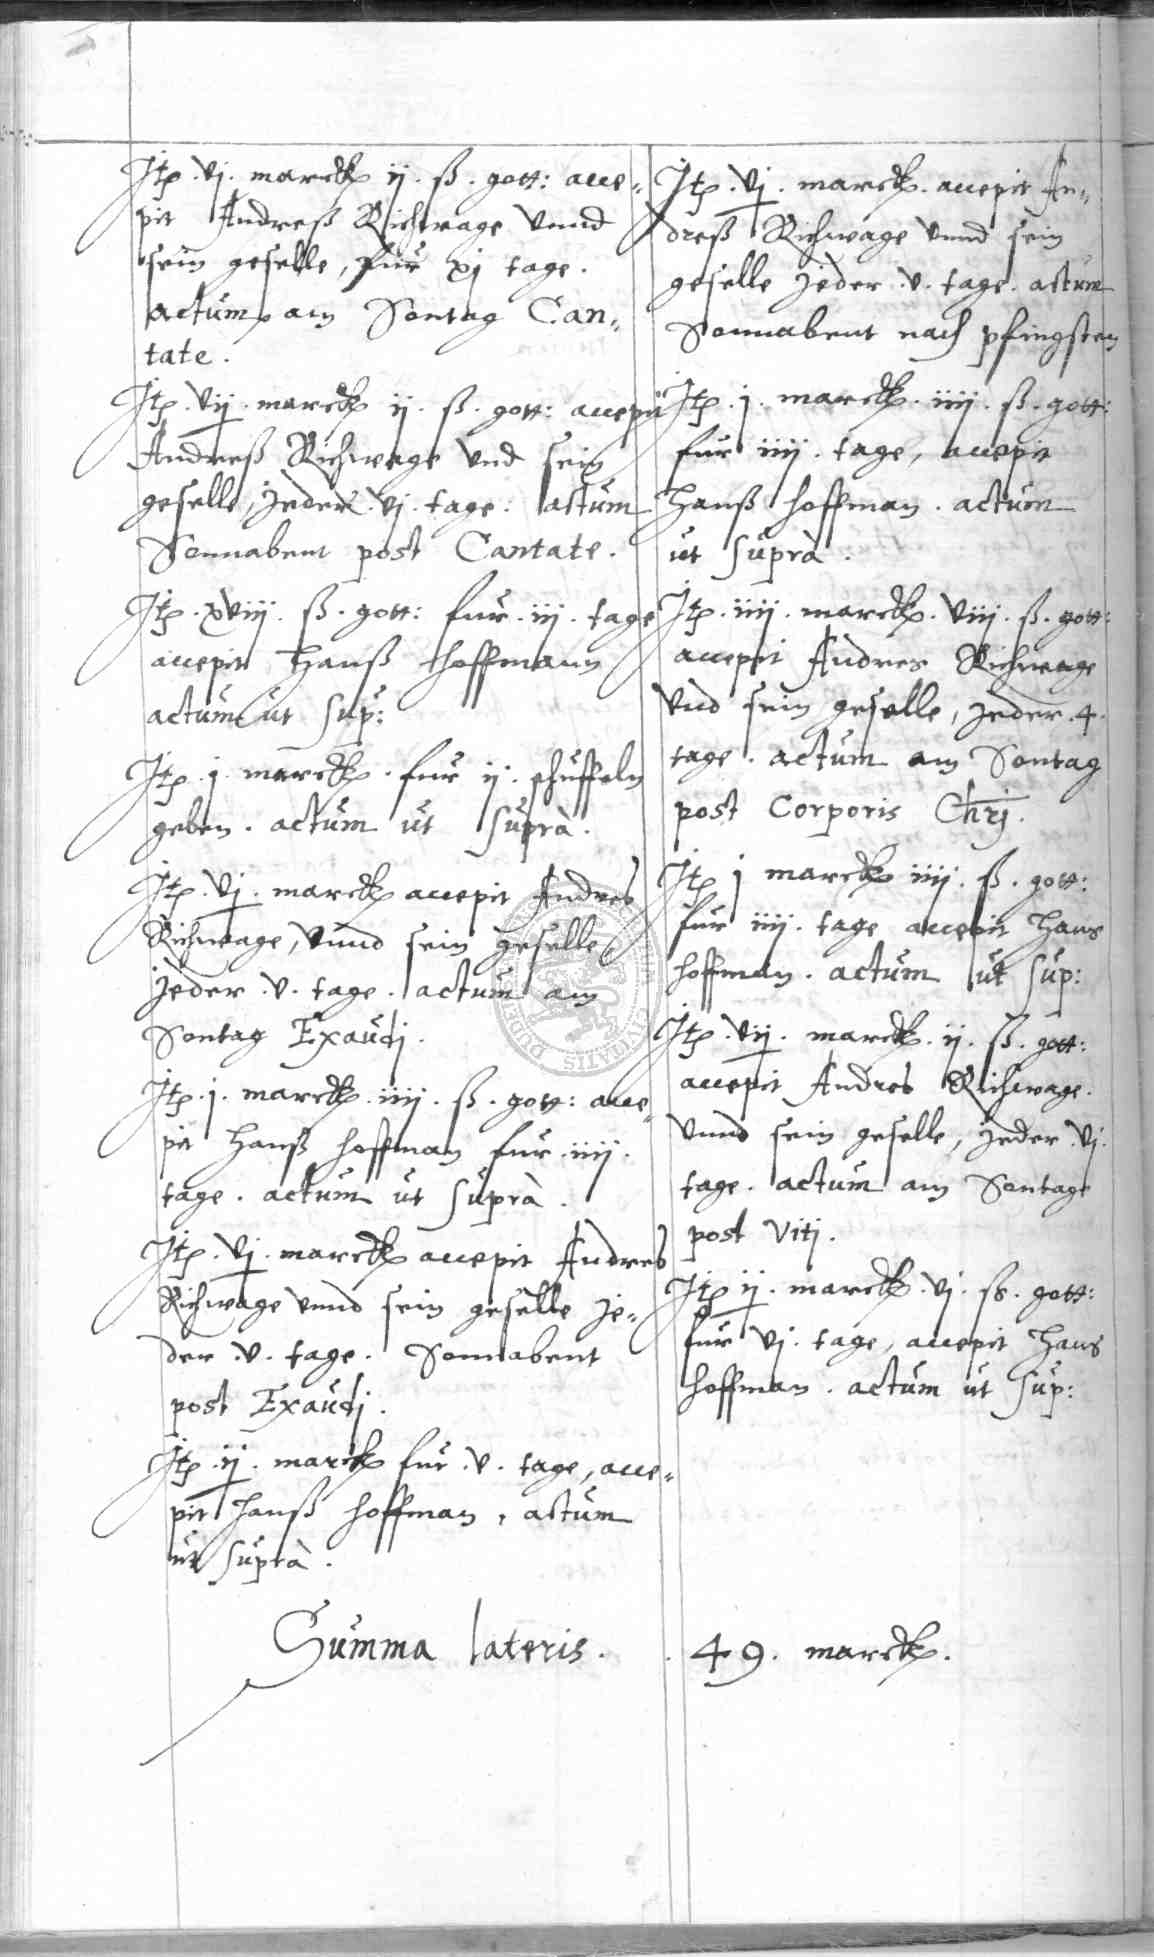 Itȩ. vj. marck ij. ß. gott: acce-
pit Andreß Richwage vnnd
sein geselle, fur xj tage.
actum am Sontag Can-
tate.
Itȩ. vij. marck ij. ß. gott: accepit
Andreß Richwage vnd sein
geselle, jeder. vj. tage. actum
Sonnabent post Cantate.
Itȩ. xviij. ß. gott: fur. iij. tage
accepit Hanß Hoffmann
actum ut sup:
Itȩ. j. marck. fur ij. schuffeln
geben. actum ut suprà.
Itȩ. vj. marck accepit Andres
Richwage, vnnd sein geselle
jeder. v. tage. actum am
Sontag Exaudj.
Itȩ. j. marck. iiij. ß. gott: acce-
pit Hanß Hoffman fur. iiij.
tage. actum ut suprà.
Itȩ. vj. marck accepit Andres
Richwage vnnd sein geselle je-
der. v. tage. Sonnabent
post Exaudj.
Itȩ. ij. marck fur. v. tage, acce-
pit Hanß Hoffman, actum
ut suprà.
Itȩ. vj. marck. accepit An-
dreß Richwage vnnd sein
geselle jeder. v. tage. actum
Sonnabent nach pfingsten
Itȩ. j. marck. iiij. ß. gott:
fur iiij. tage, accepit
Hanß Hoffman. actum
ut suprà.
Itȩ. iiij. marck. viij. ß. gott:
accepit Andres Richwage
vnd sein geselle, jeder. 4.
tage. actum am Sontag
post Corporis Chrj.
Itȩ j marck iiij. ß. gott:
fur iiij. tage accepit Hans
Hoffman. actum ut sup:
Itȩ. vij. marck. ij. ß. gott:
accepit Andres Richwage.
vnnd sein geselle, jeder. vj.
tage. actum am Sontage
post Vitj.
Itȩ ij. marck. vj. ß. gott:
fur vj. tage, accepit Hans
Hoffman. actum ut sup:
Summa lateris. 49. marck.